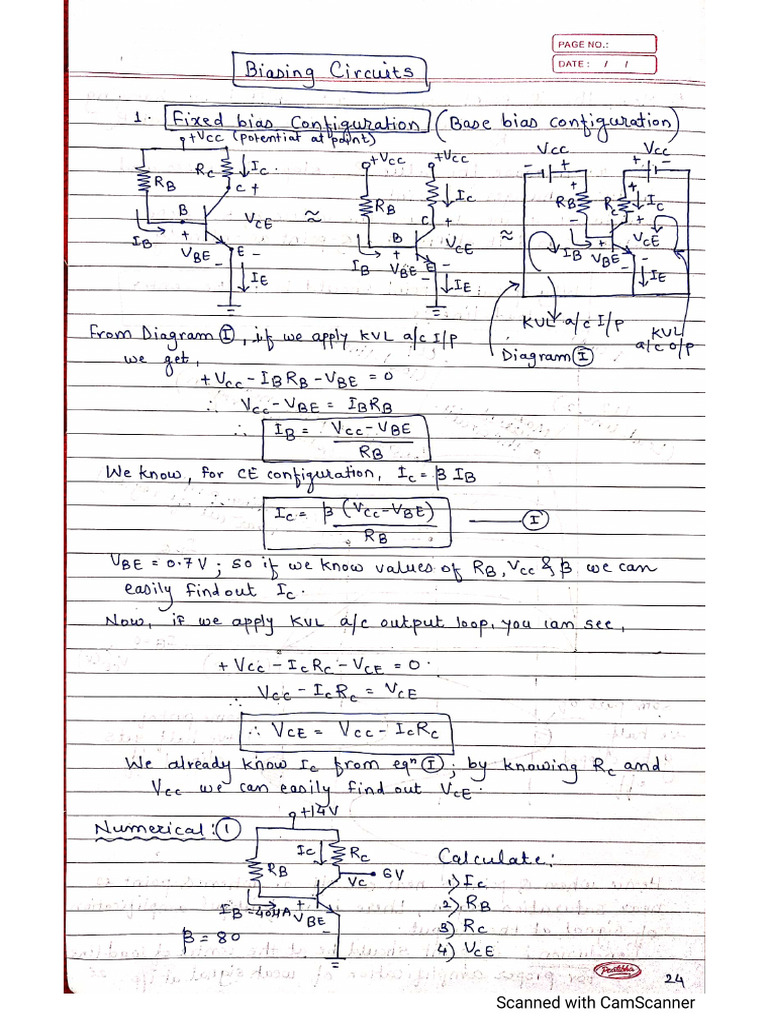 PAGE NO.:
DATE: / /
Biasing Circuits
1. Fixed bias Configuration (Base bias configuration)
+VCC (potential at point)
RB RC IC C+
B VCE
IB + VBE - E -
IE
≈
+VCC +VCC
RB IC
C +
B VCE
IB + VBE E -
IE
≈
VCC VCC
- + + -
RB RC IC
IB VBE VCE
IE
KVL a/c I/P
KVL a/c O/P
Diagram I
From Diagram I, if we apply KVL a/c I/P
we get,
+VCC - IBRB - VBE = 0
∴ VCC - VBE = IBRB
∴ IB = VCC - VBE / RB
We know, for CE configuration, IC = β IB
IC = β (VCC - VBE) / RB —— I
VBE = 0.7V ; so if we know values of RB, VCC & β we can
easily find out IC.
Now, if we apply KVL a/c output loop, you can see,
+VCC - ICRC - VCE = 0.
VCC - ICRC = VCE
∴ VCE = VCC - ICRC
We already know IC from eqn I ; by knowing RC and
VCC we can easily find out VCE.
Numerical: 1
+14V
IC RC
RB
VC 6V
IB = 40μA + VBE -
β = 80
Calculate:
1) IC
2) RB
3) RC
4) VCE
Pratibha
24
Scanned with CamScanner